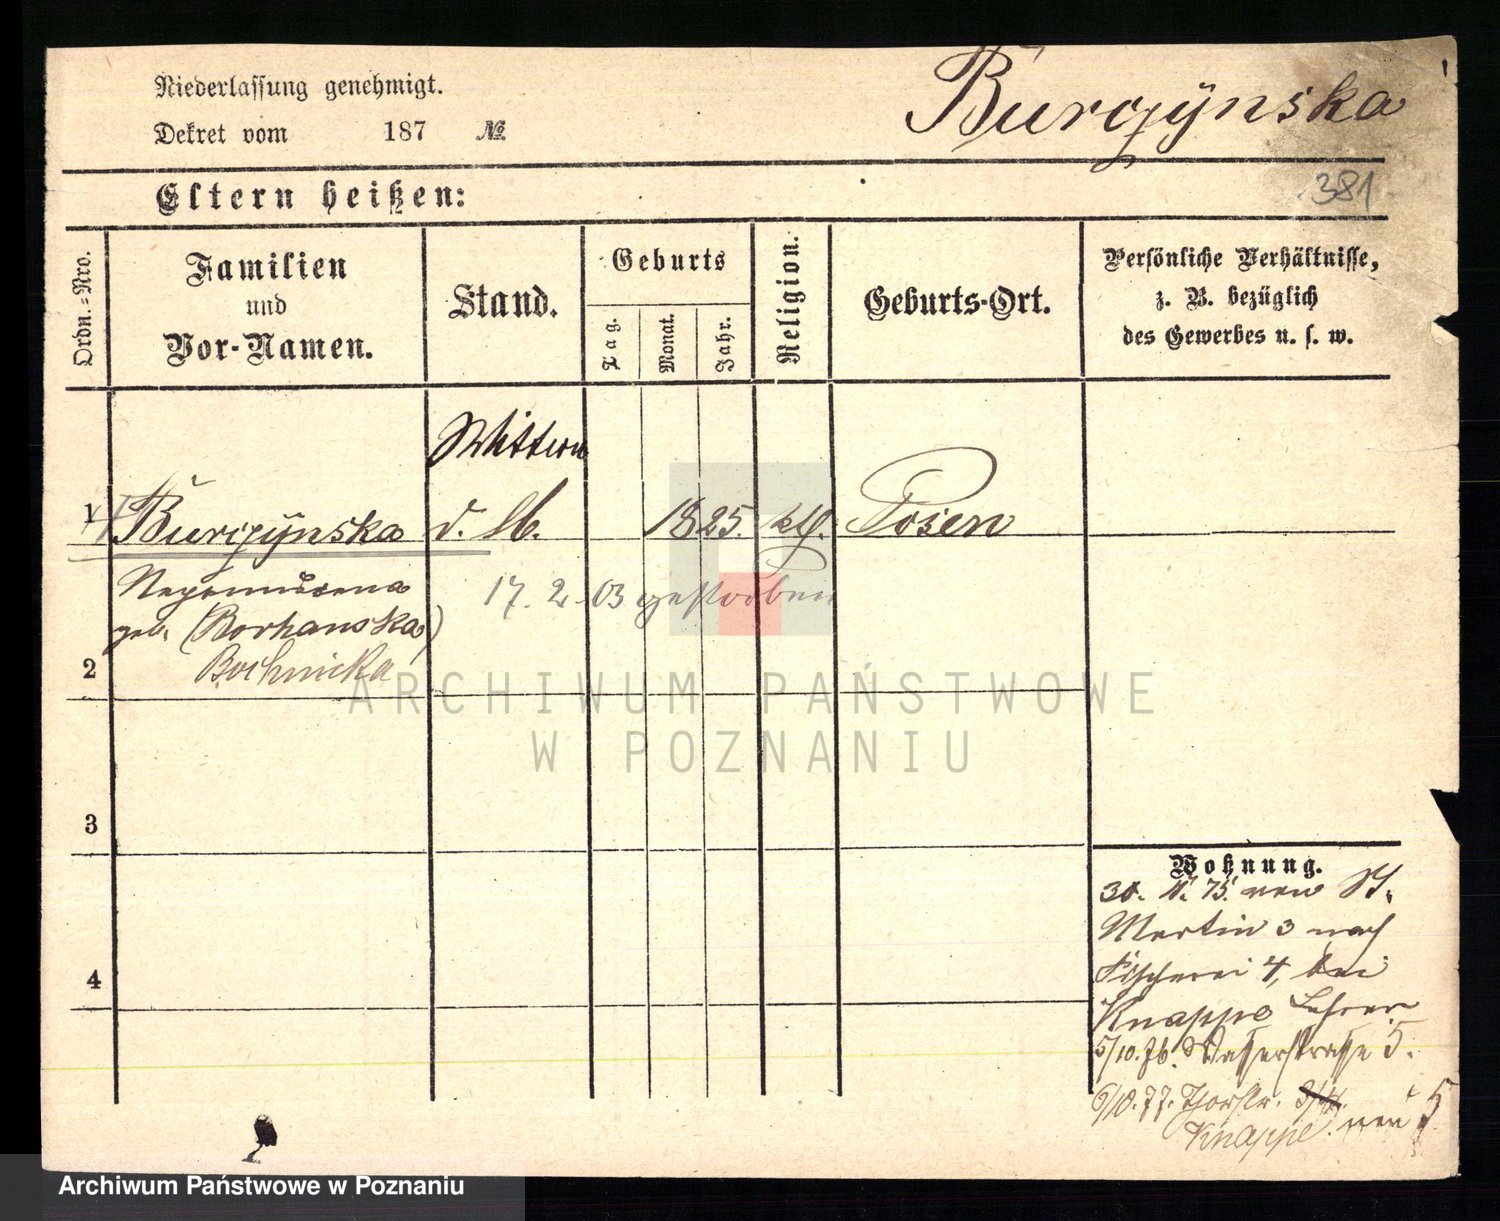 Niederlassung genehmigt.
Dekret vom 187 №
Burczÿnska
381
Eltern heißen:
Ordn.-Nro.
Familien
und
Vor-Namen.
Stand.
Geburts
Tag.
Monat.
Jahr.
Religion.
Geburts-Ort.
Persönliche Verhältnisse,
z. B. bezüglich
des Gewerbes u. s. w.
1 Burczÿnska
Wittwe
d. 1825. ktl. Posen
17. 2. 03 gestorben
Nepomucena
geb. (Borhanska)
Bochnicka
2
3
4
Wohnung.
75. von St.
Martin 3 nach
Fischerei 4, bei
Knappe Lehrer
5/10. 76. Wasserstrasse 5.
6/10. 77. Thorstr. 3/4 neu 5
Knappe
ARCHIWUM PAŃSTWOWE
W POZNANIU
Archiwum Państwowe w Poznaniu